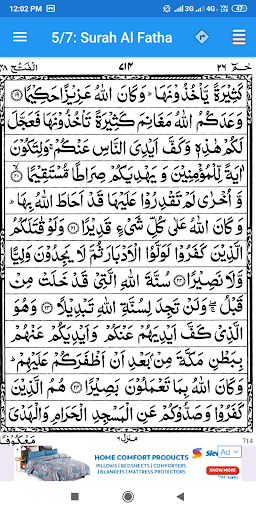 12:02 PM 3G 4G 47
5/7: Surah Al Fatha
الفتح ٤٨ ٧١٤ حٰمٓ ٢٦
كَثِيْرَةً يَّاْخُذُوْنَهَا ؕ وَكَانَ اللّٰهُ عَزِيْزًا حَكِيْمًا ﴿١٩﴾
وَعَدَكُمُ اللّٰهُ مَغَانِمَ كَثِيْرَةً تَاْخُذُوْنَهَا فَعَجَّلَ
لَكُمْ هٰذِهٖ وَكَفَّ اَيْدِىَ النَّاسِ عَنْكُمْ ۚ وَلِتَكُوْنَ
اٰيَةً لِّلْمُؤْمِنِيْنَ وَيَهْدِيَكُمْ صِرَاطًا مُّسْتَقِيْمًا ﴿٢٠﴾
وَّاُخْرٰى لَمْ تَقْدِرُوْا عَلَيْهَا قَدْ اَحَاطَ اللّٰهُ بِهَا ؕ
وَكَانَ اللّٰهُ عَلٰى كُلِّ شَىْءٍ قَدِيْرًا ﴿٢١﴾ وَلَوْ قٰتَلَكُمُ
الَّذِيْنَ كَفَرُوْا لَوَلَّوُا الْاَدْبَارَ ثُمَّ لَا يَجِدُوْنَ وَلِيًّا
وَّلَا نَصِيْرًا ﴿٢٢﴾ سُنَّةَ اللّٰهِ الَّتِىْ قَدْ خَلَتْ مِنْ
قَبْلُ ۖۚ وَلَنْ تَجِدَ لِسُنَّةِ اللّٰهِ تَبْدِيْلًا ﴿٢٣﴾ وَهُوَ
الَّذِىْ كَفَّ اَيْدِيَهُمْ عَنْكُمْ وَاَيْدِيَكُمْ عَنْهُمْ
بِبَطْنِ مَكَّةَ مِنْۢ بَعْدِ اَنْ اَظْفَرَكُمْ عَلَيْهِمْ ؕ
وَكَانَ اللّٰهُ بِمَا تَعْمَلُوْنَ بَصِيْرًا ﴿٢٤﴾ هُمُ الَّذِيْنَ
كَفَرُوْا وَصَدُّوْكُمْ عَنِ الْمَسْجِدِ الْحَرَامِ وَالْهَدْىَ
منزل ٦ مَعْكُوْفًا
714
HOME COMFORT PRODUCTS
PILLOWS | BEDSHEETS | COMFORTERS
| BLANKETS | MATTRESS PROTECTORS
Ad
KNOW MORE